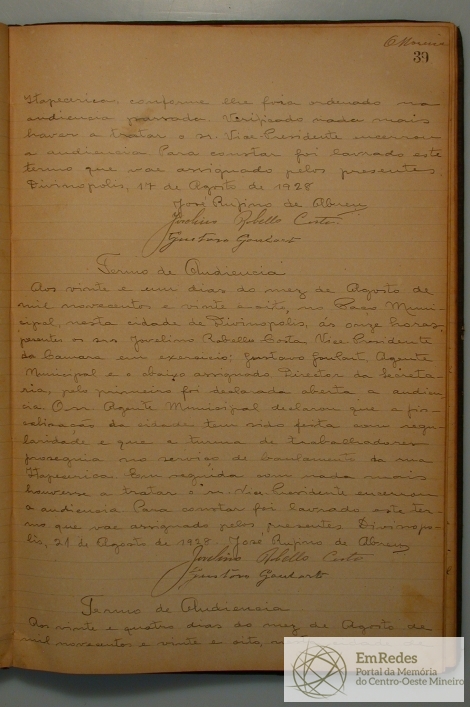 39
Itapecerica, conforme lhe fora ordenado na
audiencia passada. Verificado nada mais
haver a tratar o sr. Vice-Presidente encerrou
a audiencia. Para constar foi lavrado este
termo que vae assignado pelos presentes.
Divinopolis, 17 de Agosto de 1928
José Rufino de Abreu
Jovelino Rabello Costa
Gustavo Goulart
Termo de Audiencia
Aos vinte e um dias do mez de Agosto de
mil novecentos e vinte e oito, no Paço Muni-
cipal, nesta cidade de Divinopolis, ás onze horas,
presentes os srs. Jovelino Rabello Costa Vice-Presidente
da Camara em exercicio; Gustavo Goulart, Agente
Municipal e o abaixo assignado Director da Secreta-
ria, pelo primeiro foi declarada aberta a audien-
cia. O sr. Agente Municipal declarou que a fis-
calização da cidade tem sido feita com regu-
laridade e que a turma de trabalhadores
proseguia no serviço de baulamento da rua
Itapecerica. Em seguida com nada mais
houvesse a tratar o sr. Vice-Presidente encerrou
a audiencia. Para constar foi lavrado este ter-
mo que vae assignado pelos presentes. Divinopo-
lis, 21 de Agosto de 1928. José Rufino de Abreu
Jovelino Rabello Costa
Gustavo Goulart
Termo de Audiencia
Aos vinte e quatro dias do mez de Agosto de
mil novecentos e vinte e oito,
EmRedes
Portal da Memória
do Centro-Oeste Mineiro